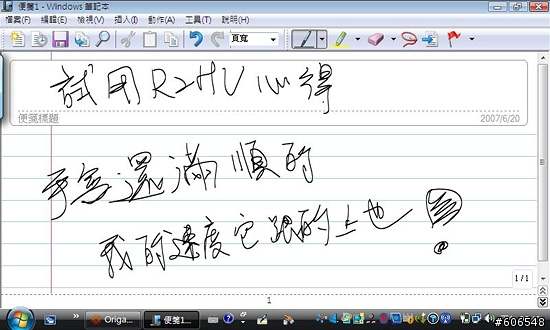 便箋1 - Windows 筆記本
檔案(F) 編輯(E) 檢視(V) 插入(I) 動作(A) 工具(T) 說明(H)
頁寬
試用R2HV心得
便箋標題 2007/6/20
手寫還滿順的
我的速度它跟的上也
1/1
1
Origa... 便箋1...
#606548